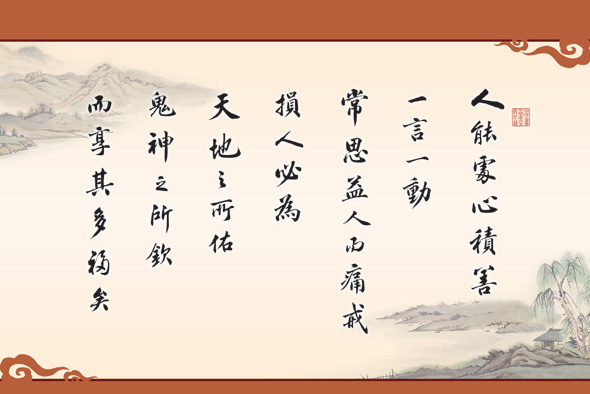 人能處心積善
一言一動
常思益人而痛戒
損人必為
天地之所佑
鬼神之所欽
而享其多福矣